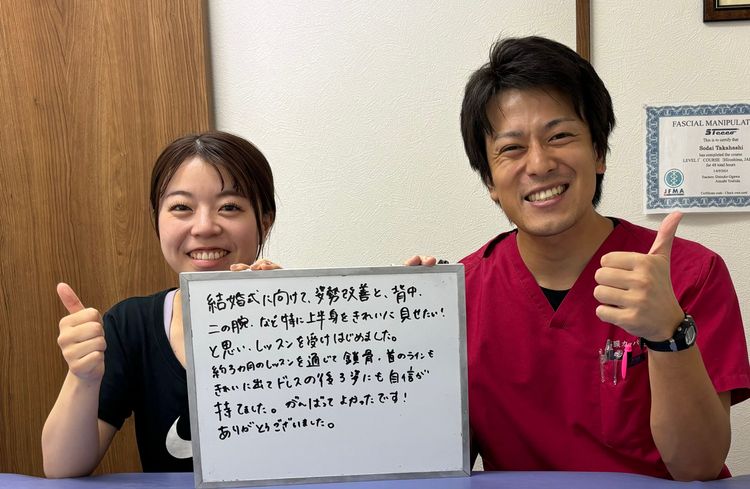 結婚式に向けて、姿勢改善と、背中、
二の腕、など特に上半身をきれいに見せたい!
と思い、レッスンを受けはじめました。
約3カ月のレッスンを通じて鎖骨、首のラインも
きれいに出てドレスの後ろ姿にも自信が
持てました。がんばってよかったです!
ありがとうございました。
FASCIAL MANIPULAT
Stecco
This is to certify that
Sodai Takahashi
has completed the course
LEVEL I° COURSE
for 48 total hours
JFMA